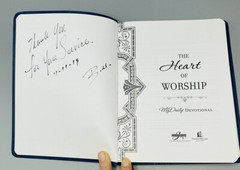 Thank You
for Your Service.
11-11-19
Bill
THE
Heart
OF
WORSHIP
My Daily DEVOTIONAL